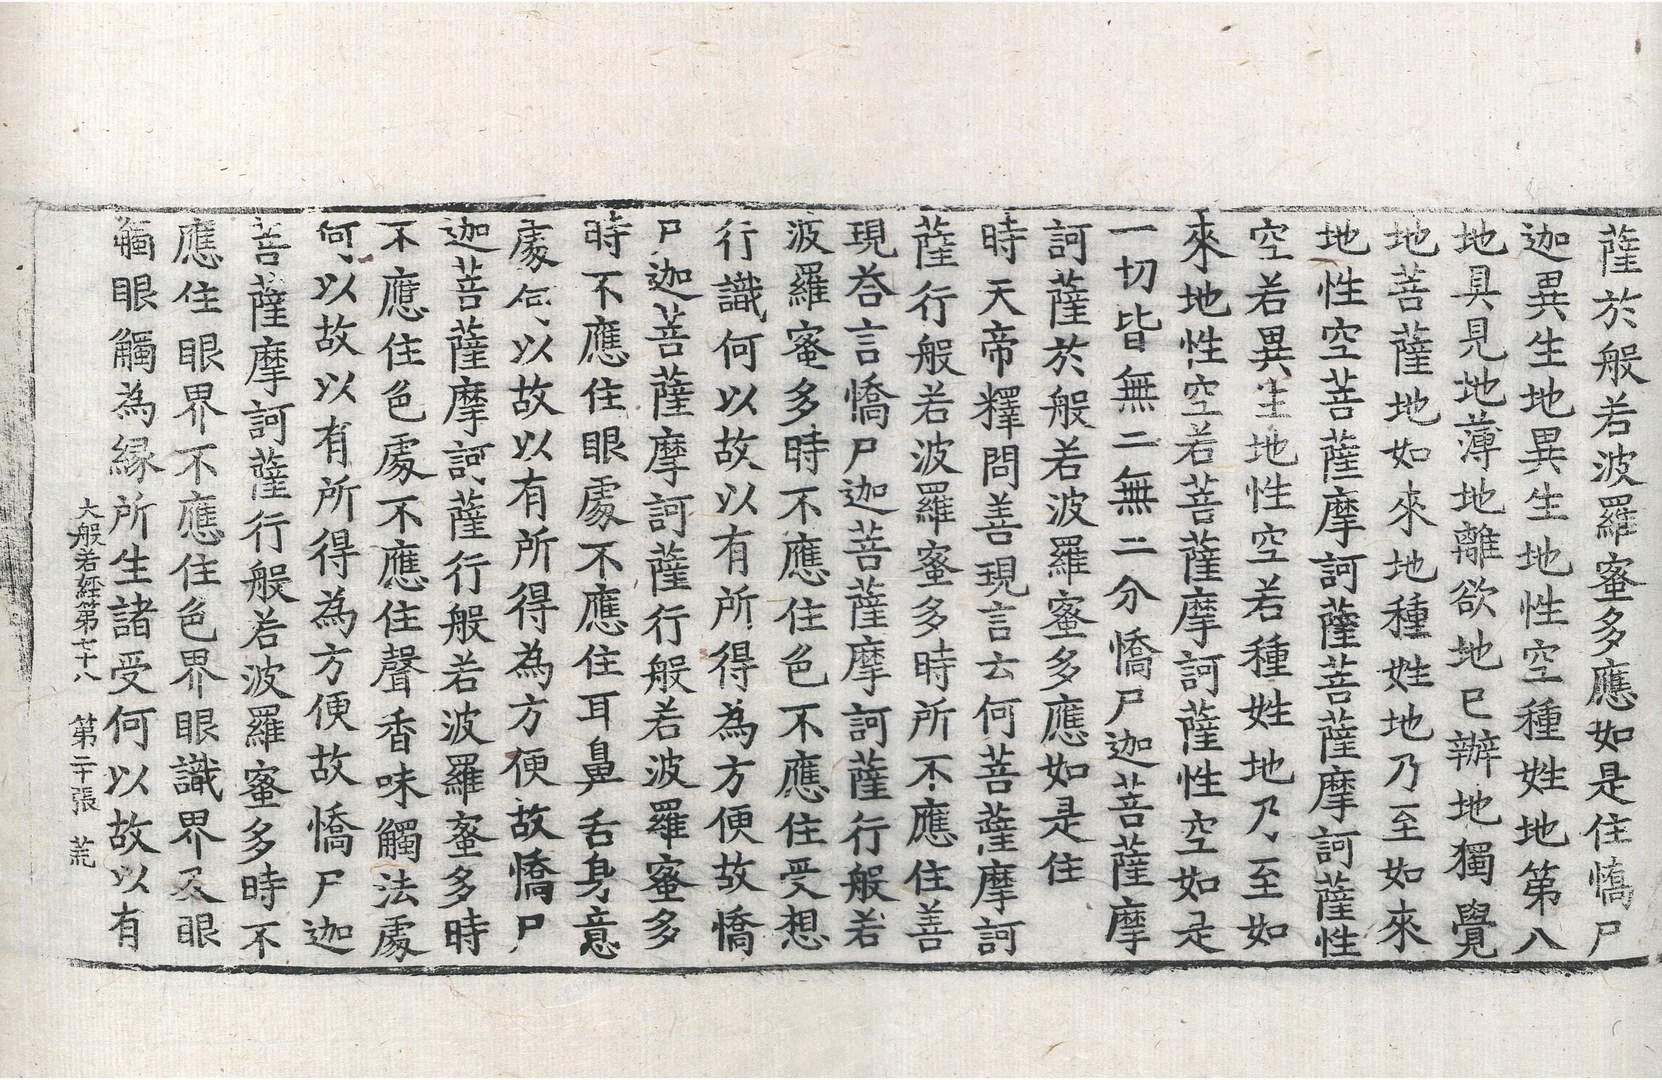 薩於般若波羅蜜多應如是住憍尸
迦異生地異生地性空種姓地第八
地具見地薄地離欲地已辦地獨覺
地菩薩地如來地種姓地乃至如來
地性空菩薩摩訶薩菩薩摩訶薩性
空若異生地性空若種姓地乃至如
來地性空若菩薩摩訶薩性空如是
一切皆無二無二分憍尸迦菩薩摩
訶薩於般若波羅蜜多應如是住
時天帝釋問善現言云何菩薩摩訶
薩行般若波羅蜜多時所不應住善
現荅言憍尸迦菩薩摩訶薩行般若
波羅蜜多時不應住色不應住受想
行識何以故以有所得為方便故憍
尸迦菩薩摩訶薩行般若波羅蜜多
時不應住眼處不應住耳鼻舌身意
處何以故以有所得為方便故憍尸
迦菩薩摩訶薩行般若波羅蜜多時
不應住色處不應住聲香味觸法處
何以故以有所得為方便故憍尸迦
菩薩摩訶薩行般若波羅蜜多時不
應住眼界不應住色界眼識界及眼
觸眼觸為緣所生諸受何以故以有
大般若經第七十八 第二十張 荒